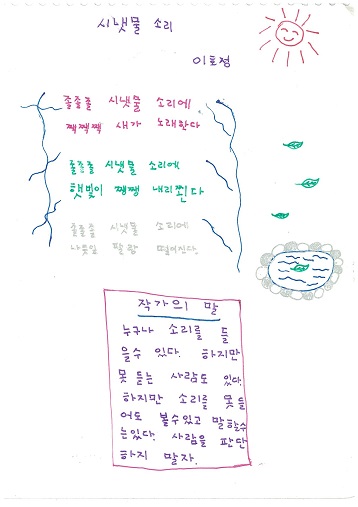 시냇물 소리
이호정
졸졸졸 시냇물 소리에
짹짹짹 새가 노래한다
졸졸졸 시냇물 소리에
햇빛이 쨍쨍 내리쬔다
졸졸졸 시냇물 소리에
나뭇잎 팔랑 떨어진다.
작가의 말
누구나 소리를 들
을수 있다. 하지만
못 듣는 사람도 있다.
하지만 소리를 못들
어도 볼수있고 말할수
는있다. 사람을 판단
하지 말자.